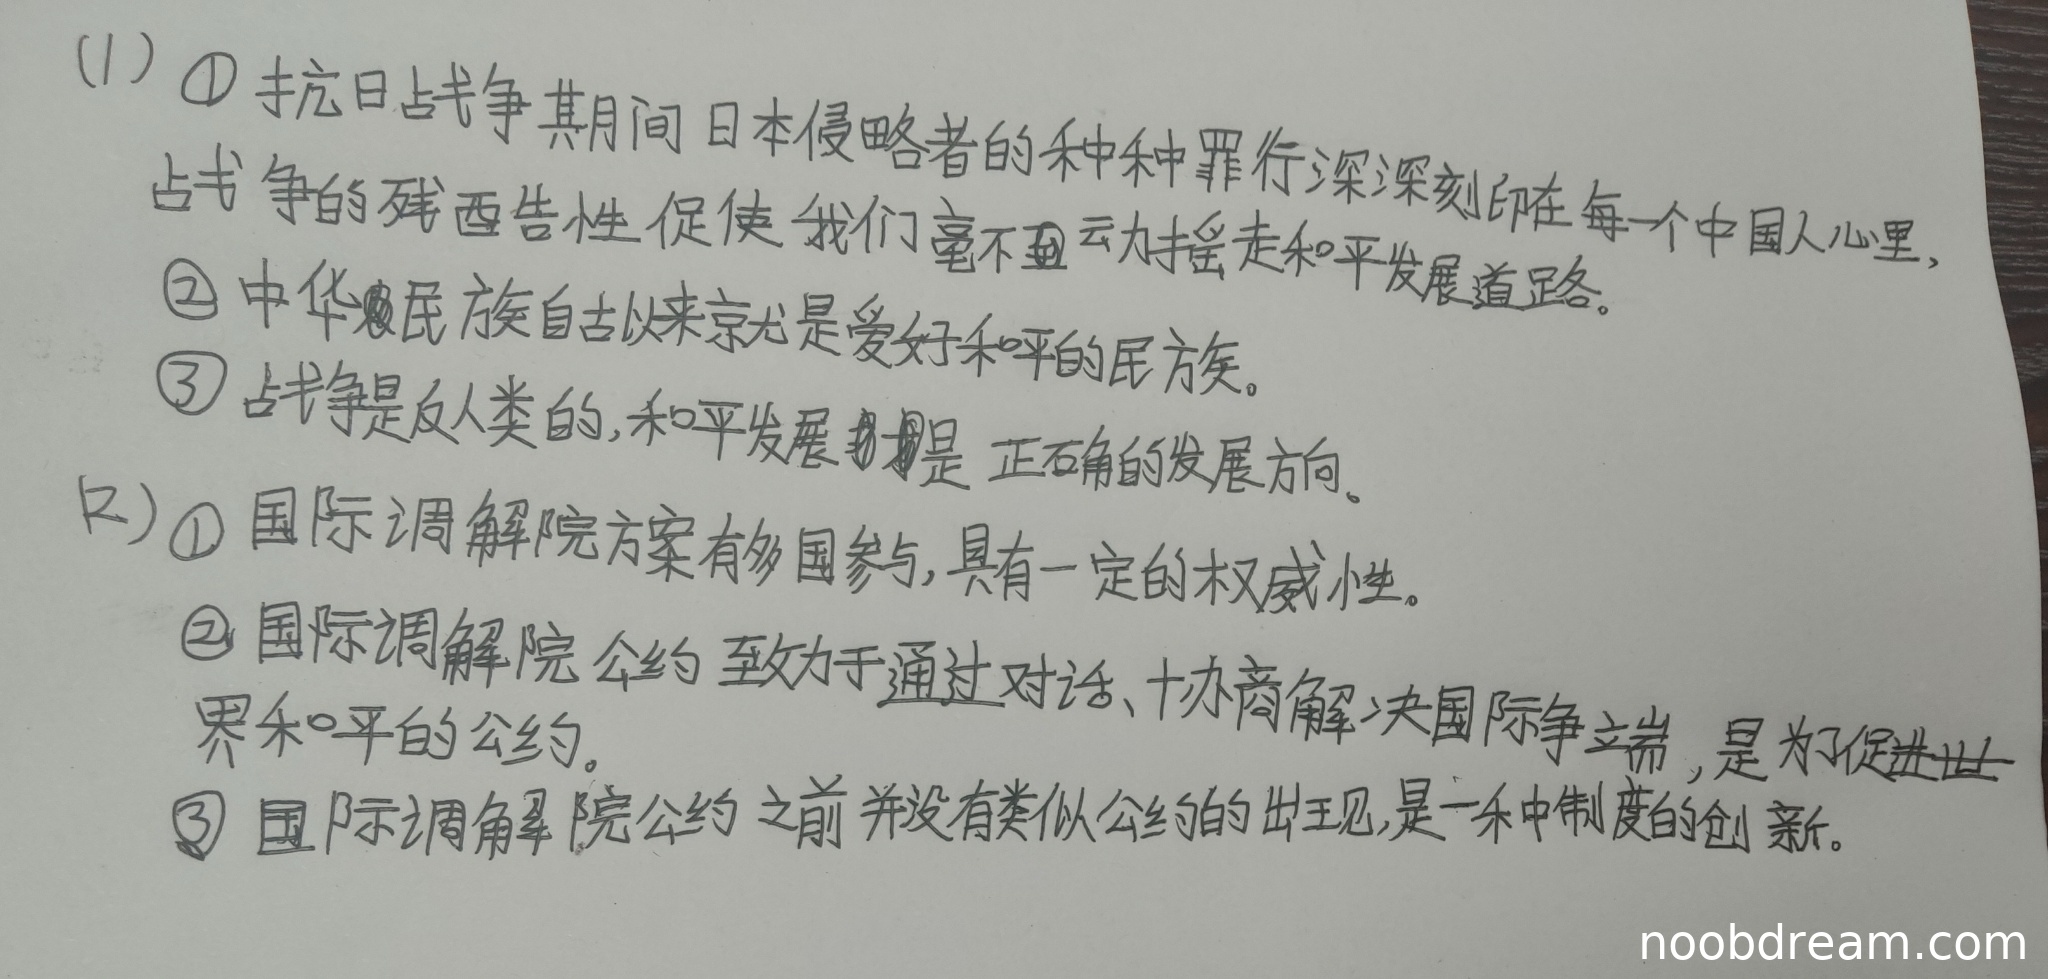 (1) ① 抗日战争期间日本侵略者的种种罪行深深刻印在每一个中国人心里,
战争的残酷性促使我们毫不动摇走和平发展道路。
② 中华民族自古以来就是爱好和平的民族。
③ 战争是反人类的,和平发展是正确的发展方向。
(2) ① 国际调解院方案有多国参与,具有一定的权威性。
② 国际调解院公约致力于通过对话、协商解决国际争端,是为了促进世
界和平的公约。
③ 国际调解院公约之前并没有类似公约的出现,是一种制度的创新。
noobdream.com